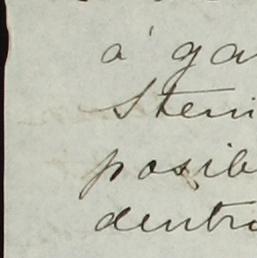 á ga
Steni
posib
dentro